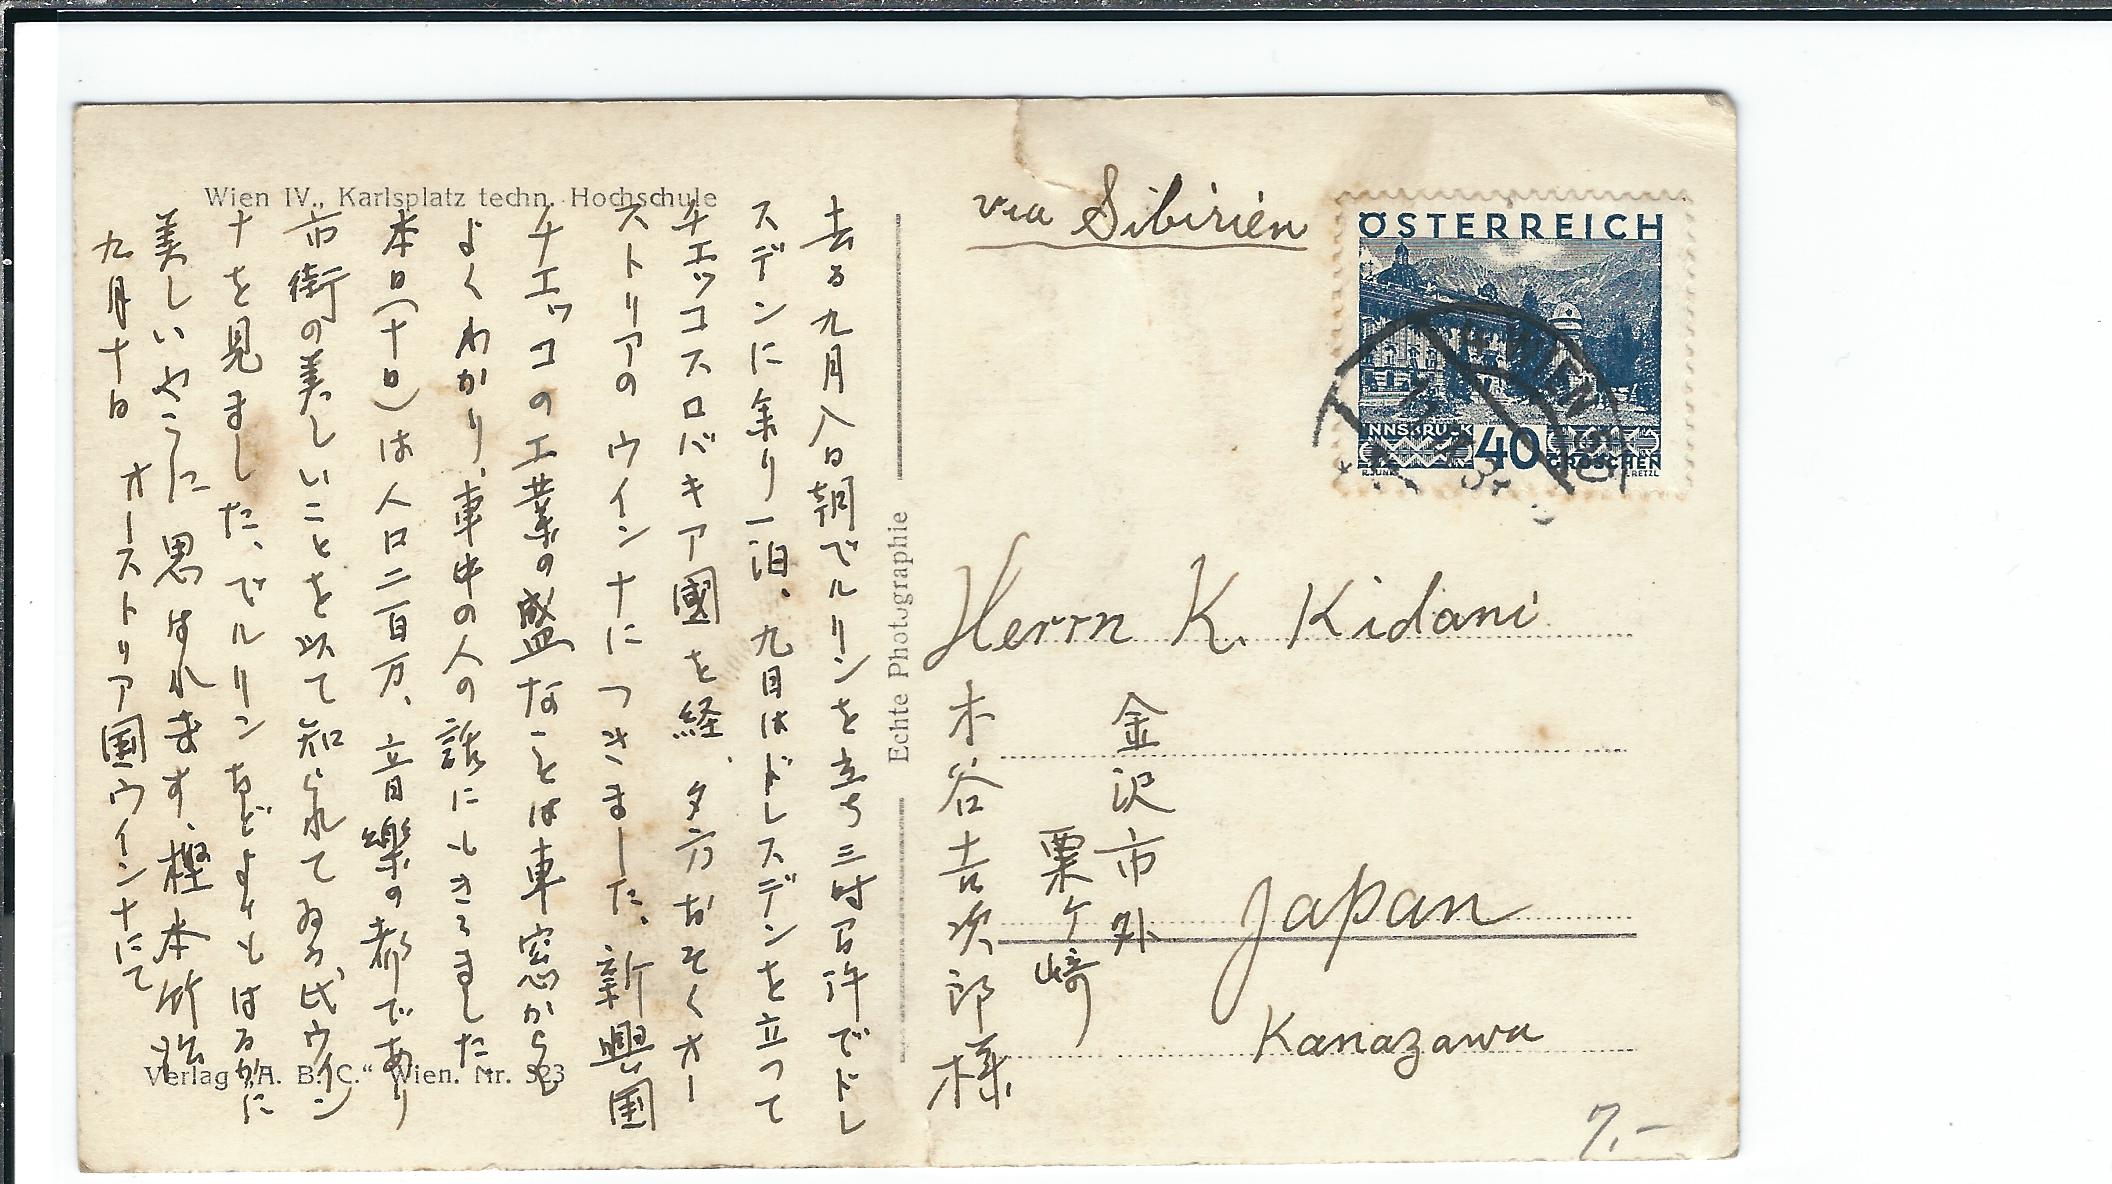 Wien IV., Karlsplatz techn. Hochschule
去る九月八日朝でルリンを立ち三時間許でドレ
スデンに参り一泊、九日はドレスデンを立つて
チエッコスロバキア國を経、夕方おそくオー
ストリアのウインナにつきました、新興国
チエッコの工業の盛なことは車窓からも
よくわかり、車中の人の話にもきゝました
本日(十日)は人口二百万、音樂の都であり
市街の美しいことを以て知られてゐるウイン
ナを見ました、でルリンなどよりもはるかに
美しいやうに思はれます、樫本竹治
九月十日 オーストリア国ウインナにて
Verlag "A. B. C." Wien. Nr. 523
Echte Photographie
via Sibirien
ÖSTERREICH
INNSBRUCK
40
GROSCHEN
WIEN
Herrn K. Kidani
金沢市外
粟ケ崎
木谷吉次郎様
Japan
Kanazawa
7.-